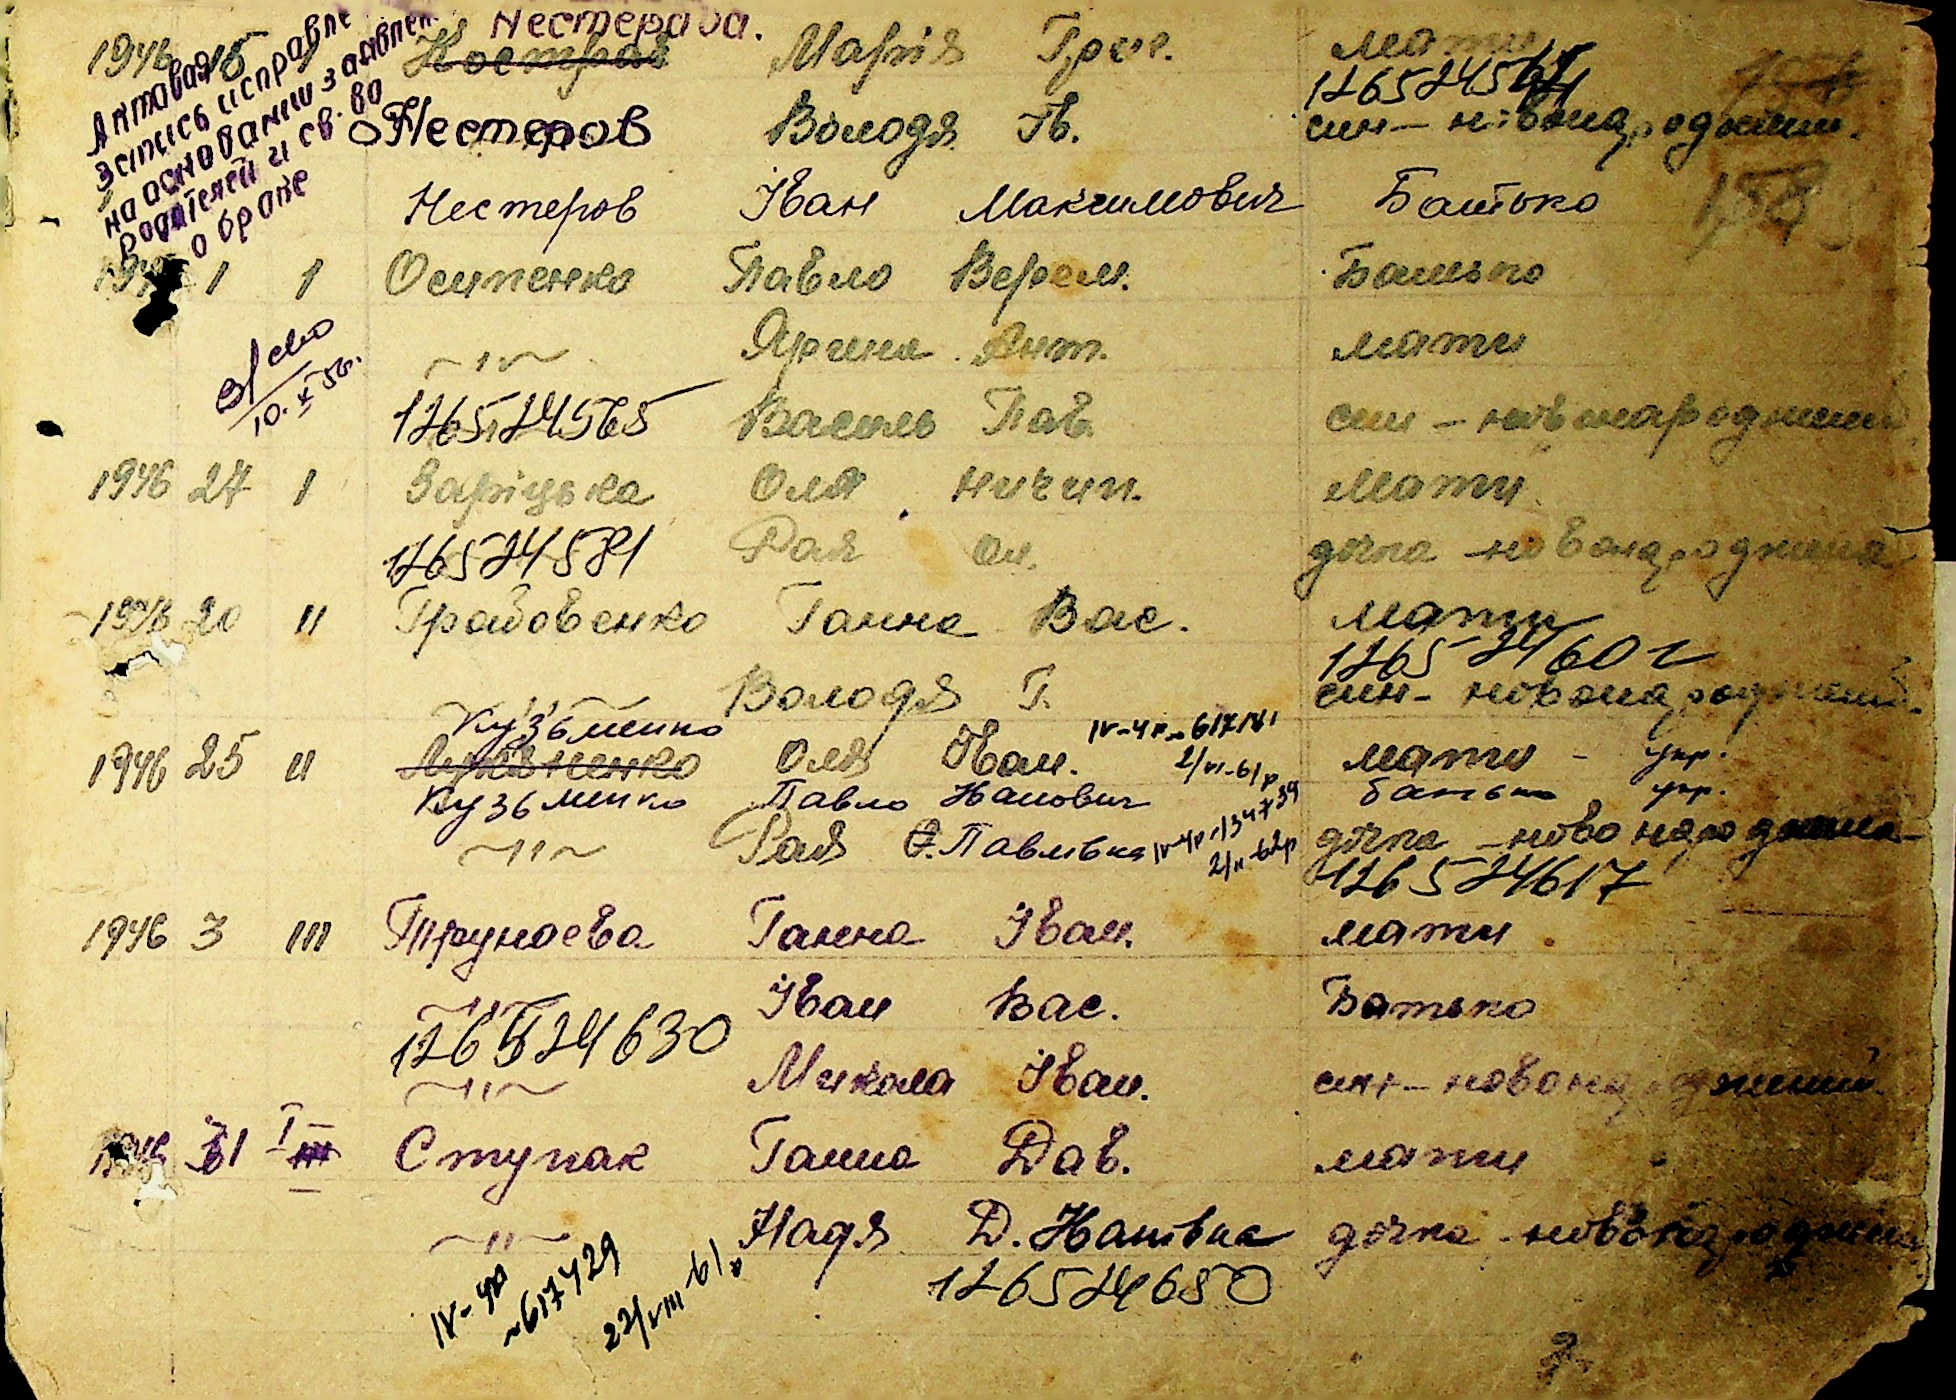 Нестерова.
Актовая
запись исправле
на основании заявлен
родителей и св. ва
о браке
1946 15 1 Костра Марія Григ. мати
126524564
Нестеров Володя Ів. син – новонароджений.
Нестеров Іван Максимович Батько 158
1946 1 1 Осипенко Павло Верем. Батько
—"— Ярина Ант. мати
10. X 56.
126524565 Василь Пав. син – новонароджений
1946 27 1 Заріцька Оля Ничип. мати
126524581 Рая Ол. дочка – новонароджена
1946 20 II Градовенко Ганна Вас. мати
126524602
—"— Володя Г. син – новонароджений.
Кузьменко IV-ЧР 617141
1946 25 II Оля Іван. 2/VI-61р мати – укр.
Кузьменко Павло Іванович батько укр.
—"— Рая О. Павлівна IV-ЧР 134739 дочка – новонароджена
2/II-62р 126524617
1946 3 III Трунаева Ганна Іван. мати
—"— Іван Вас. Батько
126524630
—"— Микола Іван. син – новонароджений.
1946 31 I III Ступак Ганна Дав. мати
—"— Надя Д. Іванівна дочка – новонароджена
126524650
IV-ЧР
617429
22/VIII-61р